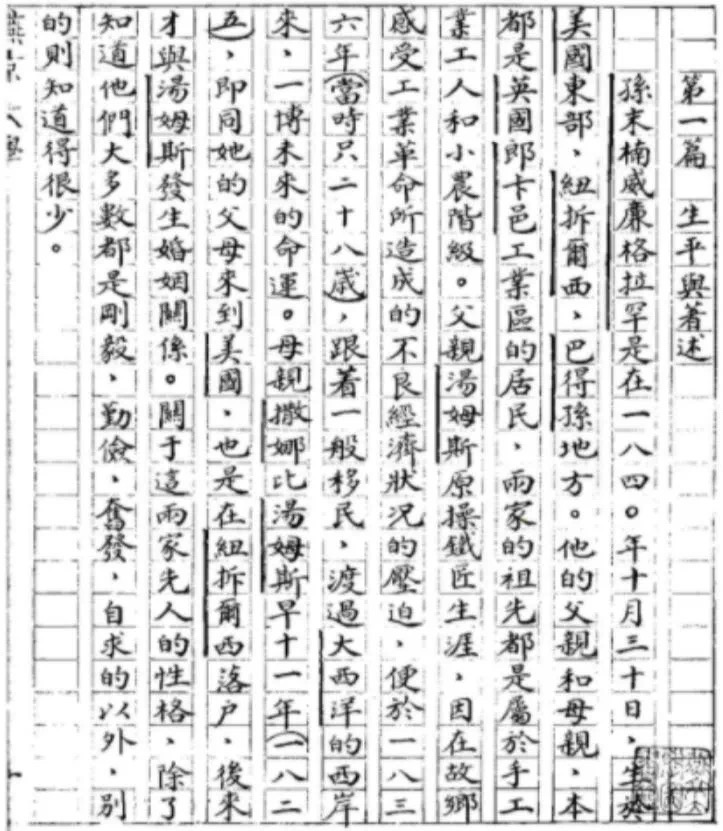 第一篇 生平與著述
孫末楠威廉格拉罕是在一八四〇年十月三十日，生於
美國東部、紐折爾西、巴得孫地方。他的父親和母親，本
都是英國郎卡邑工業區的居民，兩家的祖先都是屬於手工
業工人和小農階級。父親湯姆斯原操鐵匠生涯，因在故鄉
感受工業革命所造成的不良經濟狀況的壓迫，便於一八三
六年（當時只二十八歲），跟着一般移民，渡過大西洋的西岸
來，一博未來的命運。母親撒娜比湯姆斯早十一年（一八二
五），即同她的父母來到美國，也是在紐折爾西落户，後來
才與湯姆斯發生婚姻關係。關于這兩家先人的性格，除了
知道他們大多數都是剛毅、勤儉、奮發，自求的以外，別
的則知道得很少。
燕京大學
一